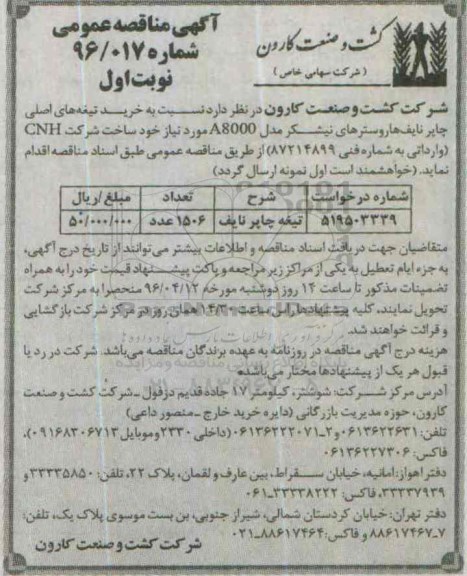 آگهی مناقصه عمومی
شماره ۹۶/۰۱۷
نوبت اول
کشت و صنعت کارون
(شرکت سهامی خاص)
شرکت کشت و صنعت کارون در نظر دارد نسبت به خرید تیغه‌های اصلی
چاپر نایف هاروسترهای نیشکر مدل A8000 مورد نیاز خود ساخت شرکت CNH
(وارداتی به شماره فنی ۸۷۲۱۴۸۹۹) از طریق مناقصه عمومی طبق اسناد مناقصه اقدام
نماید. (خواهشمند است اول نمونه ارسال گردد)
شماره درخواست شرح تعداد مبلغ/ریال
۵۱۹۵۰۳۳۳۹ تیغه چاپر نایف ۱۵۰۶ عدد ۵۰/۰۰۰/۰۰۰
متقاضیان جهت دریافت اسناد مناقصه و اطلاعات بیشتر می‌توانند از تاریخ درج آگهی،
به جزء ایام تعطیل به یکی از مراکز زیر مراجعه و پاکت پیشنهاد قیمت خود را به همراه
تضمینات مذکور تا ساعت ۱۴ روز دوشنبه مورخه ۹۶/۰۴/۱۲ منحصرا به مرکز شرکت
تحویل نمایند، کلیه پیشنهادها راس ساعت ۱۴/۳۰ همان روز در مرکز شرکت بازگشایی
و قرائت خواهند شد.
هزینه درج آگهی مناقصه در روزنامه به عهده برندگان مناقصه می‌باشد. شرکت در رد یا
قبول هر یک از پیشنهادها مختار می‌باشد.
آدرس مرکز شرکت: شوشتر، کیلومتر ۱۷ جاده قدیم دزفول ـ شرکت کشت و صنعت
کارون، حوزه مدیریت بازرگانی (دایره خرید خارج ـ منصور داعی)
تلفن: ۰۶۱۳۶۲۲۲۶۳۱ و ۲ـ۰۶۱۳۶۲۲۲۰۷۱ (داخلی ۲۳۳۰ و موبایل ۰۹۱۶۸۳۰۶۷۱۳)،
فاکس: ۰۶۱۳۶۲۲۷۳۰۶
دفتر اهواز: امانیه، خیابان سقراط، بین عارف و لقمان، پلاک ۲۲، تلفن: ۳۳۳۳۵۸۵۰ و
۳۳۳۳۷۹۳۹، فاکس: ۳۳۳۳۸۲۲۲ـ۰۶۱
دفتر تهران: خیابان کردستان شمالی، شیراز جنوبی، بن بست موسوی پلاک یک، تلفن:
۷ـ۸۸۶۱۷۴۶۷ و فاکس: ۸۸۶۱۷۴۶۴ـ۰۲۱
شرکت کشت و صنعت کارون